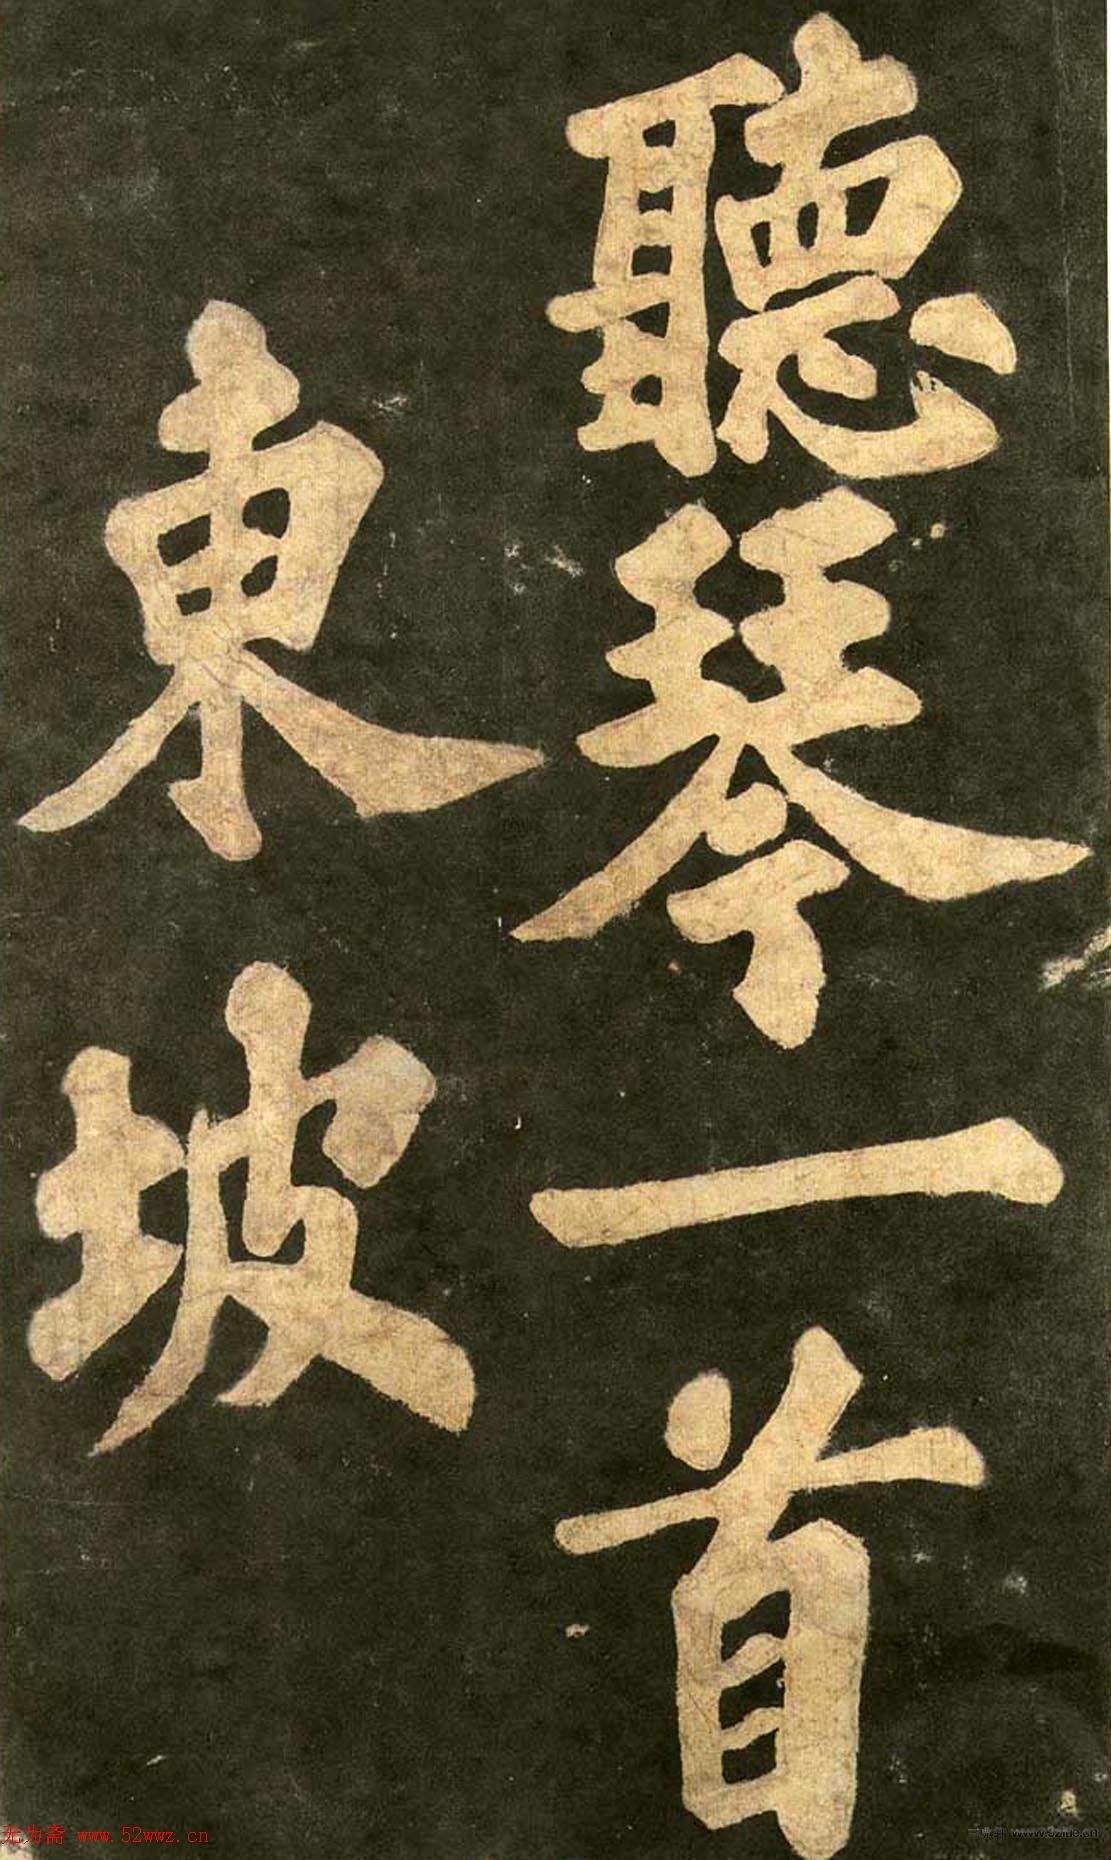 聽琴一首
東坡
无为斋 www.52wwz.cn